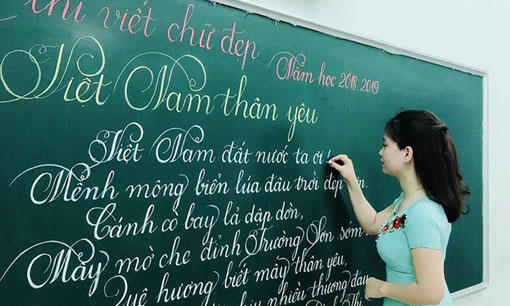 thi viết chữ đẹp
Năm học 2018-2019
Việt Nam thân yêu
Việt Nam đất nước ta ơi!
Mênh mông biển lúa đâu trời đẹp
Cánh cò bay lả dập dờn,
Mây mờ che đỉnh Trường Sơn sớm
Quê hương biết mấy thân yêu,
nhiêu thương đau